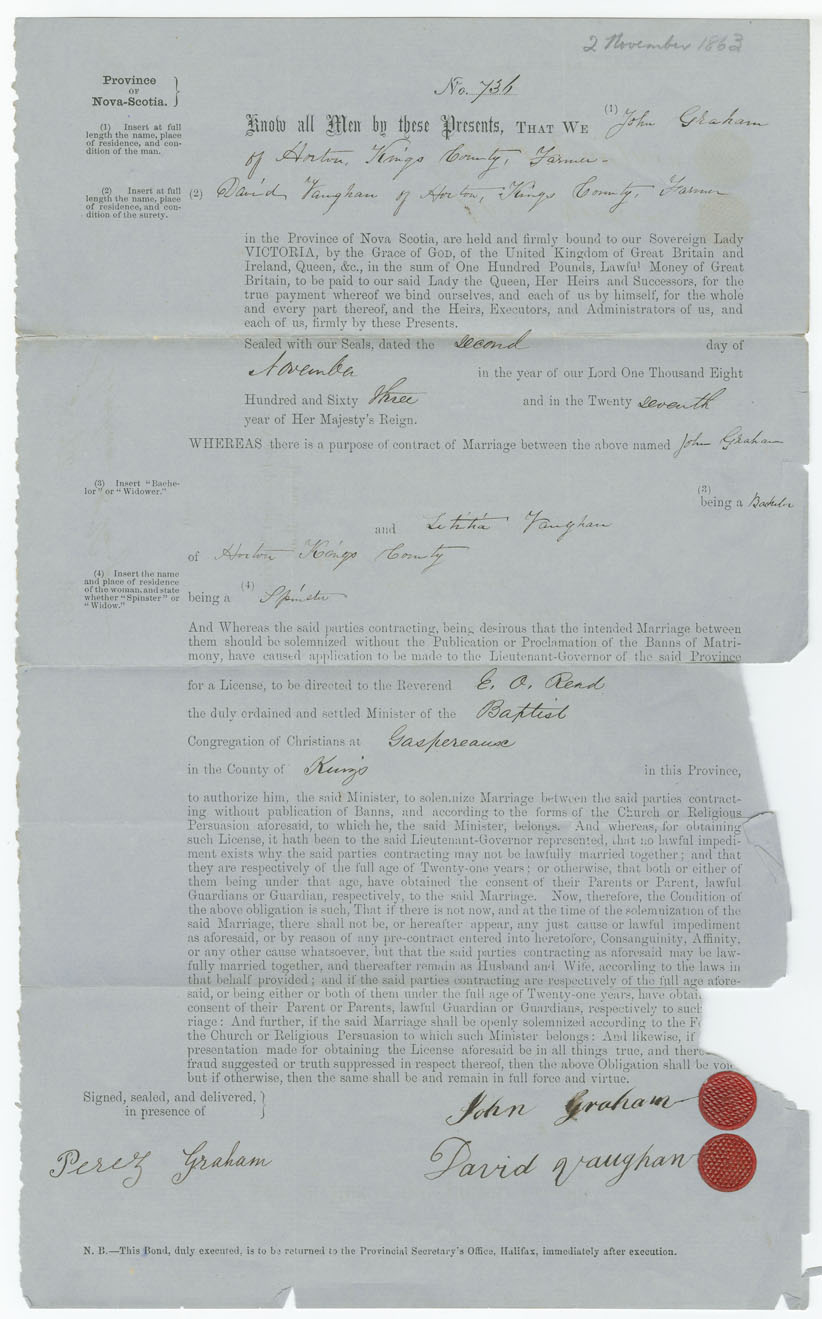 2 November 1863
Province
OF
Nova-Scotia.
No. 736
(1) Insert at full
length the name, place
of residence, and con-
dition of the man.
Know all Men by these Presents, THAT WE (1) John Graham
of Horton, Kings County, Farmer -
(2) Insert at full
length the name, place
of residence, and con-
dition of the surety.
(2) David Vaughan of Horton, Kings County, Farmer
in the Province of Nova Scotia, are held and firmly bound to our Sovereign Lady
VICTORIA, by the Grace of GOD, of the United Kingdom of Great Britain and
Ireland, Queen, &c., in the sum of One Hundred Pounds, Lawful Money of Great
Britain, to be paid to our said Lady the Queen, Her Heirs and Successors, for the
true payment whereof we bind ourselves, and each of us by himself, for the whole
and every part thereof, and the Heirs, Executors, and Administrators of us, and
each of us, firmly by these Presents.
Sealed with our Seals, dated the second day of
November in the year of our Lord One Thousand Eight
Hundred and Sixty three and in the Twenty seventh
year of Her Majesty's Reign.
WHEREAS there is a purpose of contract of Marriage between the above named John Graham
(3) Insert "Bache-
lor" or "Widower."
(3)
being a Bachelor
and Letitia Vaughan
of Horton Kings County
(4) Insert the name
and place of residence
of the woman, and state
whether "Spinster" or
"Widow."
being a (4) Spinster
And Whereas the said parties contracting, being desirous that the intended Marriage between
them should be solemnized without the Publication or Proclamation of the Banns of Matri-
mony, have caused application to be made to the Lieutenant-Governor of the said Province
for a License, to be directed to the Reverend E. O. Read
the duly ordained and settled Minister of the Baptist
Congregation of Christians at Gaspereaux
in the County of Kings in this Province,
to authorize him, the said Minister, to solemnize Marriage between the said parties contract-
ing without publication of Banns, and according to the forms of the Church or Religious
Persuasion aforesaid, to which he, the said Minister, belongs. And whereas, for obtaining
such License, it hath been to the said Lieutenant-Governor represented, that no lawful impedi-
ment exists why the said parties contracting may not be lawfully married together; and that
they are respectively of the full age of Twenty-one years; or otherwise, that both or either of
them being under that age, have obtained the consent of their Parents or Parent, lawful
Guardians or Guardian, respectively, to the said Marriage. Now, therefore, the Condition of
the above obligation is such, That if there is not now, and at the time of the solemnization of the
said Marriage, there shall not be, or hereafter appear, any just cause or lawful impediment
as aforesaid, or by reason of any pre-contract entered into heretofore, Consanguinity, Affinity,
or any other cause whatsoever, but that the said parties contracting as aforesaid may be law-
fully married together, and thereafter remain as Husband and Wife, according to the laws in
that behalf provided; and if the said parties contracting are respectively of the full age afore-
said, or being either or both of them under the full age of Twenty-one years, have obtai
consent of their Parent or Parents, lawful Guardian or Guardians, respectively to such
riage: And further, if the said Marriage shall be openly solemnized according to the Fo
the Church or Religious Persuasion to which such Minister belongs: And likewise, if
presentation made for obtaining the License aforesaid be in all things true, and there
fraud suggested or truth suppressed in respect thereof, then the above Obligation shall be void
but if otherwise, then the same shall be and remain in full force and virtue.
Signed, sealed, and delivered,
in presence of
John Graham
Perez Graham
David Vaughan
N. B.—This Bond, duly executed, is to be returned to the Provincial Secretary's Office, Halifax, immediately after execution.